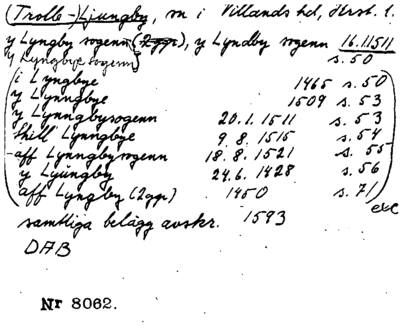 (Trolle-)Ljungby, sn i Villands hd, Krst. l.
y Lyngby sogenn (2ggr), y Lyndby sogenn 16.11.1511
y Lyngbye sogenn s. 50
i Lyngbye 1465 s. 50
y Lynngbye 1509 s. 53
y Lynngbysogenn 20.1.1511 s. 53
till Lynngbye 9.8.1515 s. 54
aff Lynngbysogenn 18.8.1521 s. 55
y Lyungby 24.6.1428 s. 56
aff Lyngby (2ggr) 1450 s. 71
exc
samtliga belägg avskr. 1593
DAB
Nr 8062.